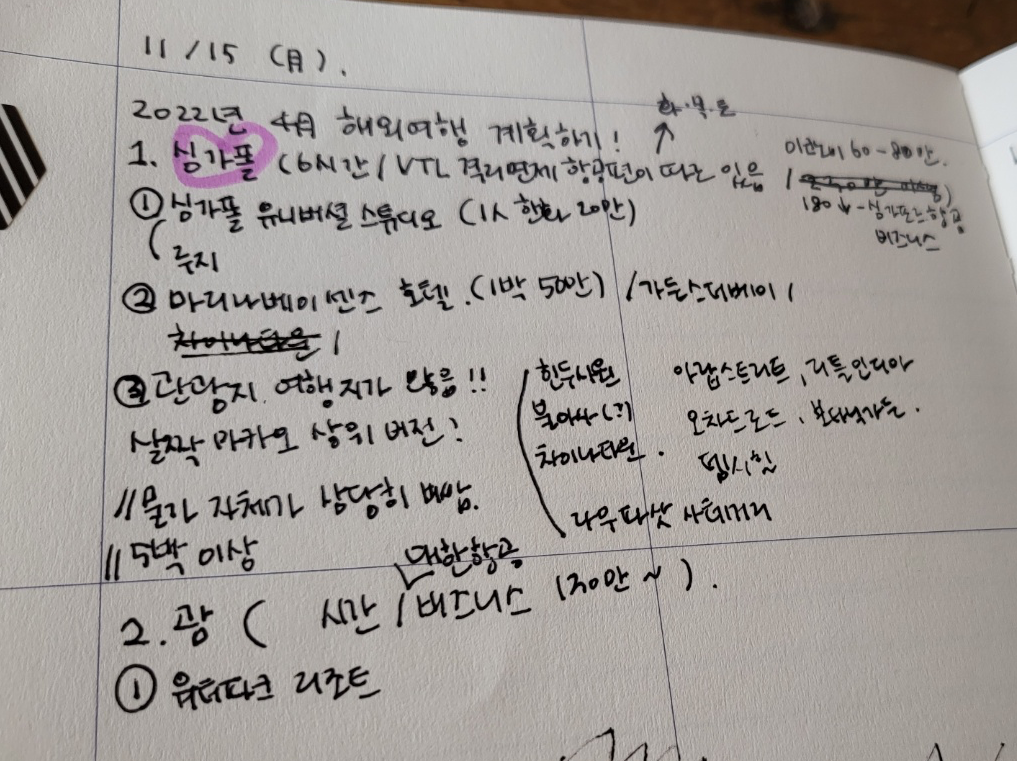 11/15 (月).
2022년 4月 해외여행 계획하기!
화·목·토
1. 싱가폴 (6시간 / VTL 격리면제 항공편이 따로 있음
이코노미 60-80만.
180↓-싱가포르항공
비즈니스
① 싱가폴 유니버셜 스튜디오 (1人 한화 20만)
루지
② 마리나베이센즈 호텔. (1박 50만) / 가든스더베이 /
차이나타운 /
③ 관광지. 여행지가 많음!!
살짝 마카오 상위 버전?
// 물가 자체가 상당히 비쌈.
// 5박 이상
힌두사원 아랍스트리트, 리틀인디아
불아사(?) 오차드로드, 보타닉가든.
차이나타운. 뎀시힐
라우파삿 사테거리
대한항공
2. 괌 ( 시간 / 비즈니스 130만~).
① 워터파크 리조트